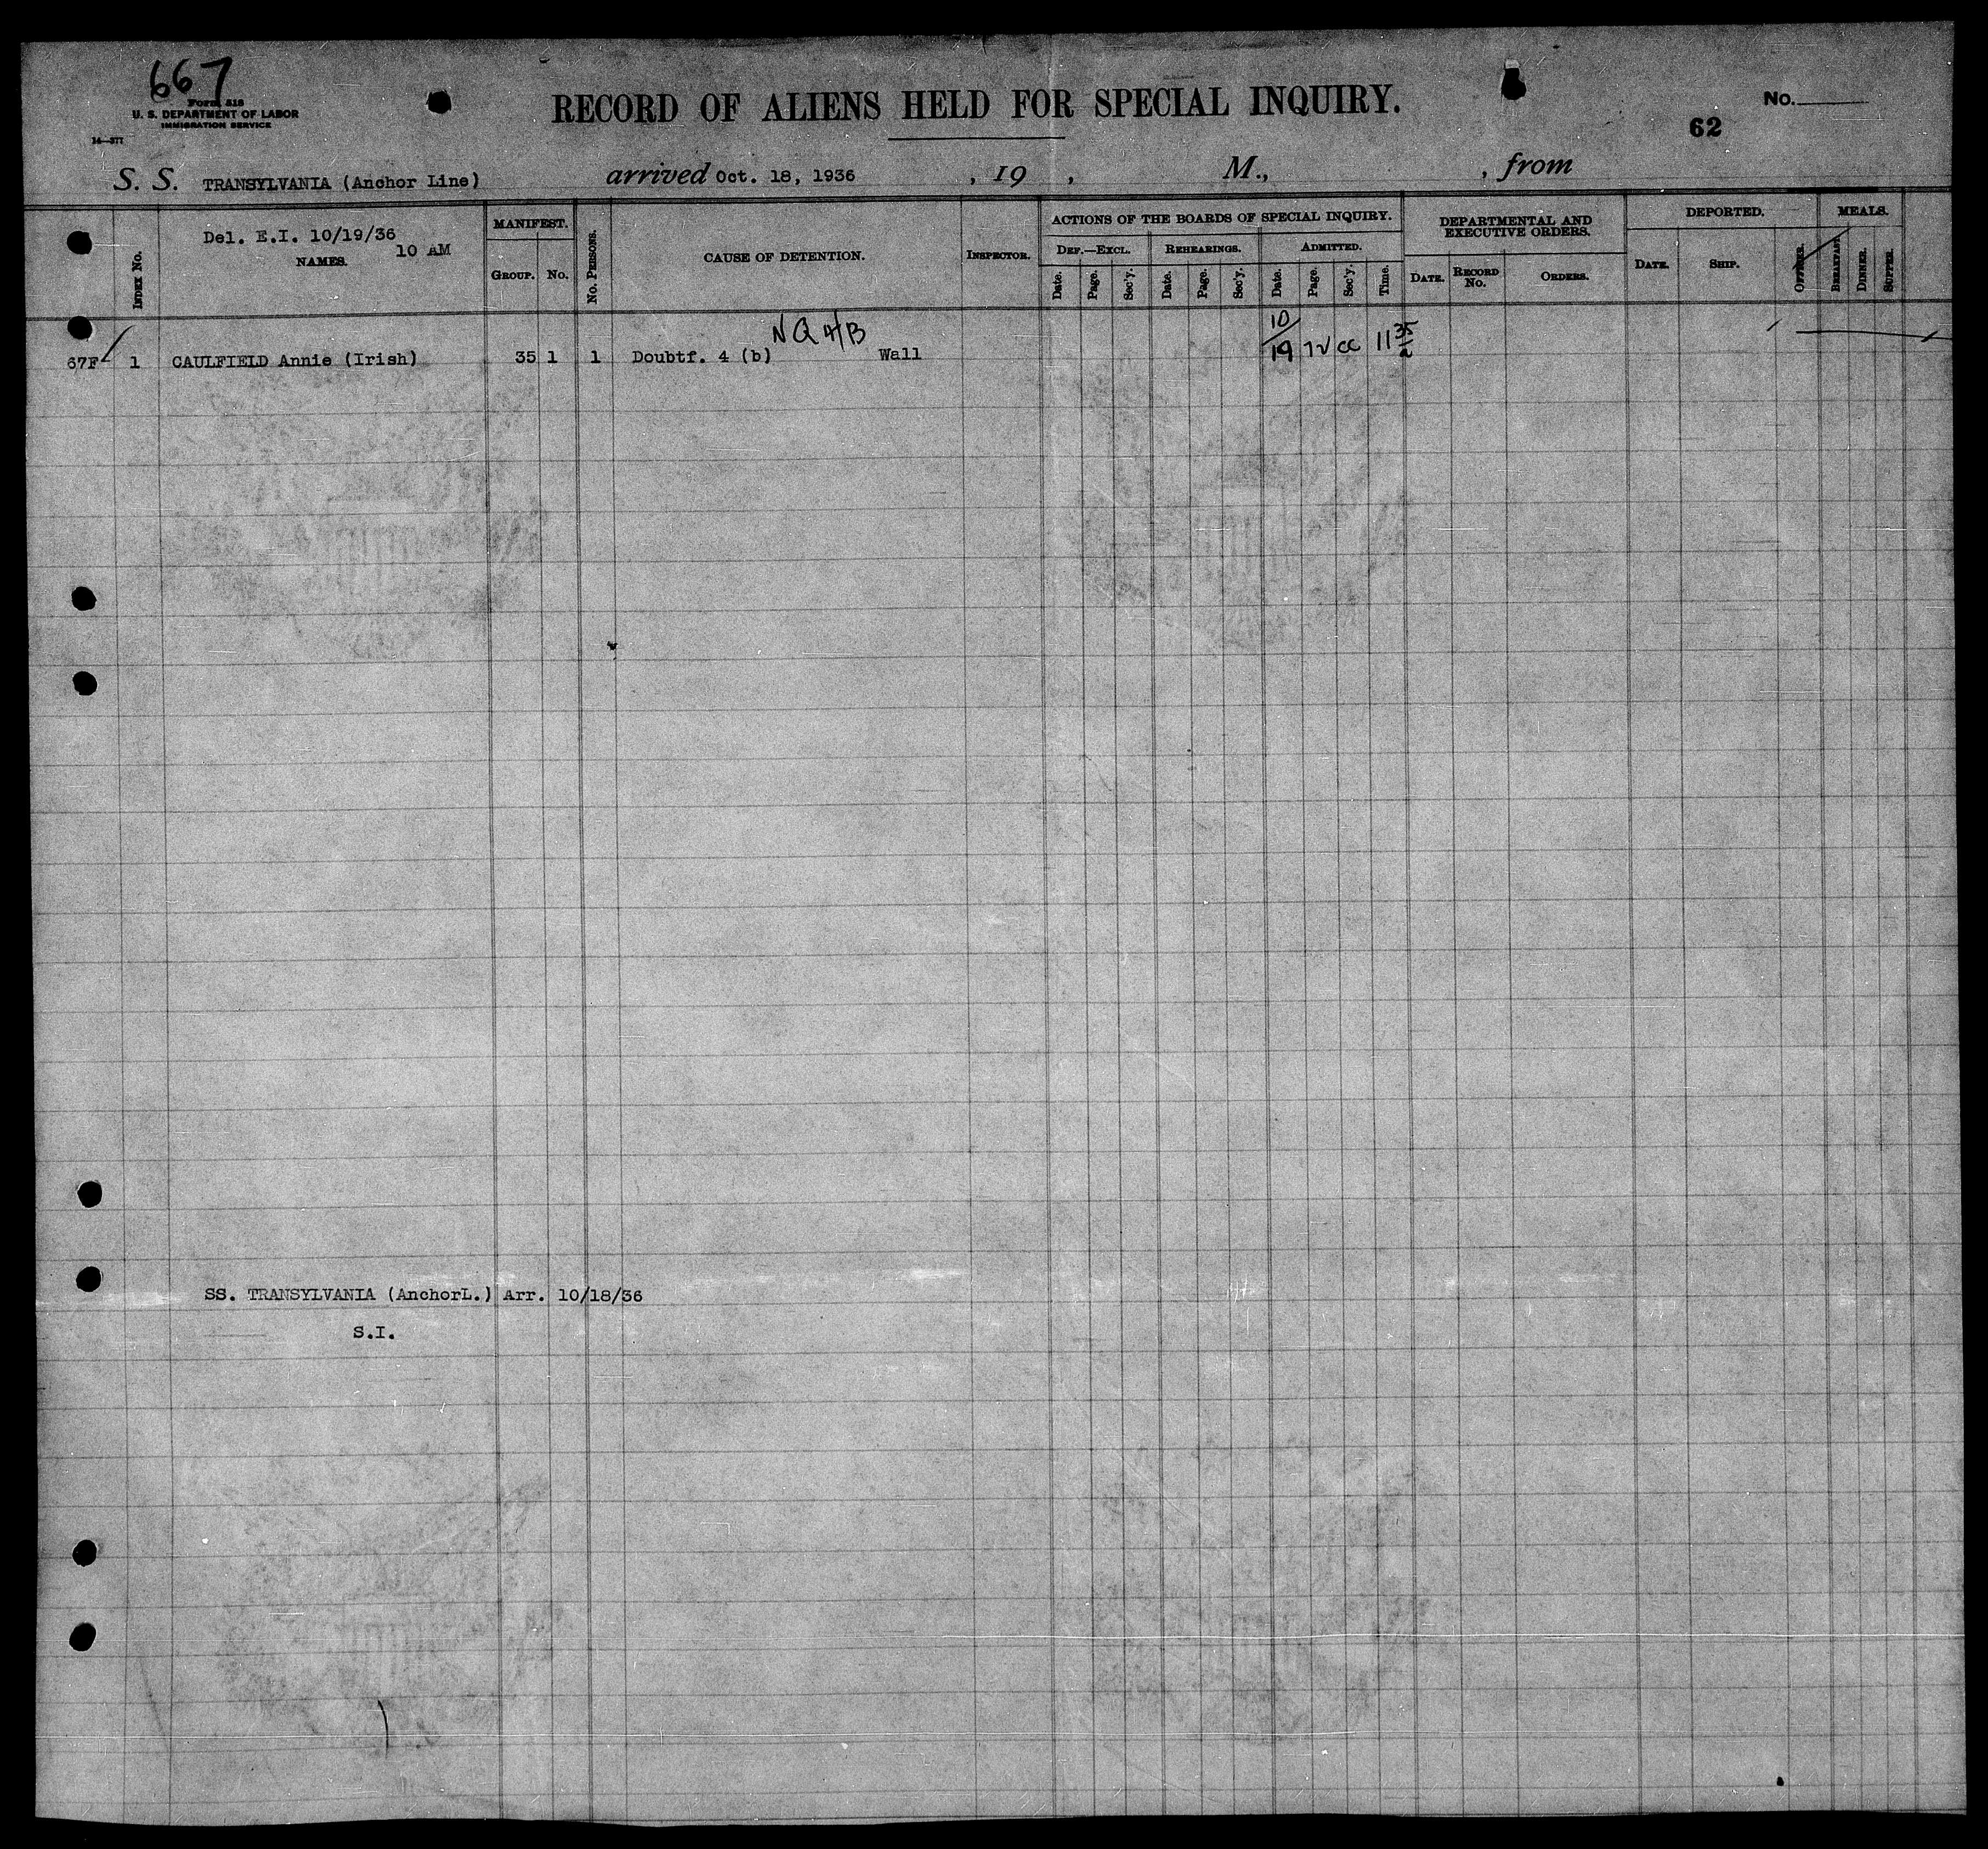 667
Form 518
U. S. DEPARTMENT OF LABOR
IMMIGRATION SERVICE
14—377
RECORD OF ALIENS HELD FOR SPECIAL INQUIRY.
No.
62
S. S. TRANSYLVANIA (Anchor Line) arrived Oct. 18, 1936 , 19 , M., , from
Index No.
Del. E.I. 10/19/36
10 AM
NAMES.
MANIFEST.
Group. No.
No. Persons.
CAUSE OF DETENTION.
Inspector.
ACTIONS OF THE BOARDS OF SPECIAL INQUIRY.
Def.—Excl. Rehearings. Admitted.
Date. Page. Sec'y. Date. Page. Sec'y. Date. Page. Sec'y. Time.
DEPARTMENTAL AND
EXECUTIVE ORDERS.
Date. Record No. Orders.
DEPORTED.
Date. Ship. Officer.
MEALS.
Breakfast. Dinner. Supper.
67F 1 CAULFIELD Annie (Irish) 35 1 1 Doubtf. 4 (b) Wall 10/19 CC 11 35
SS. TRANSYLVANIA (AnchorL.) Arr. 10/18/36
S.I.